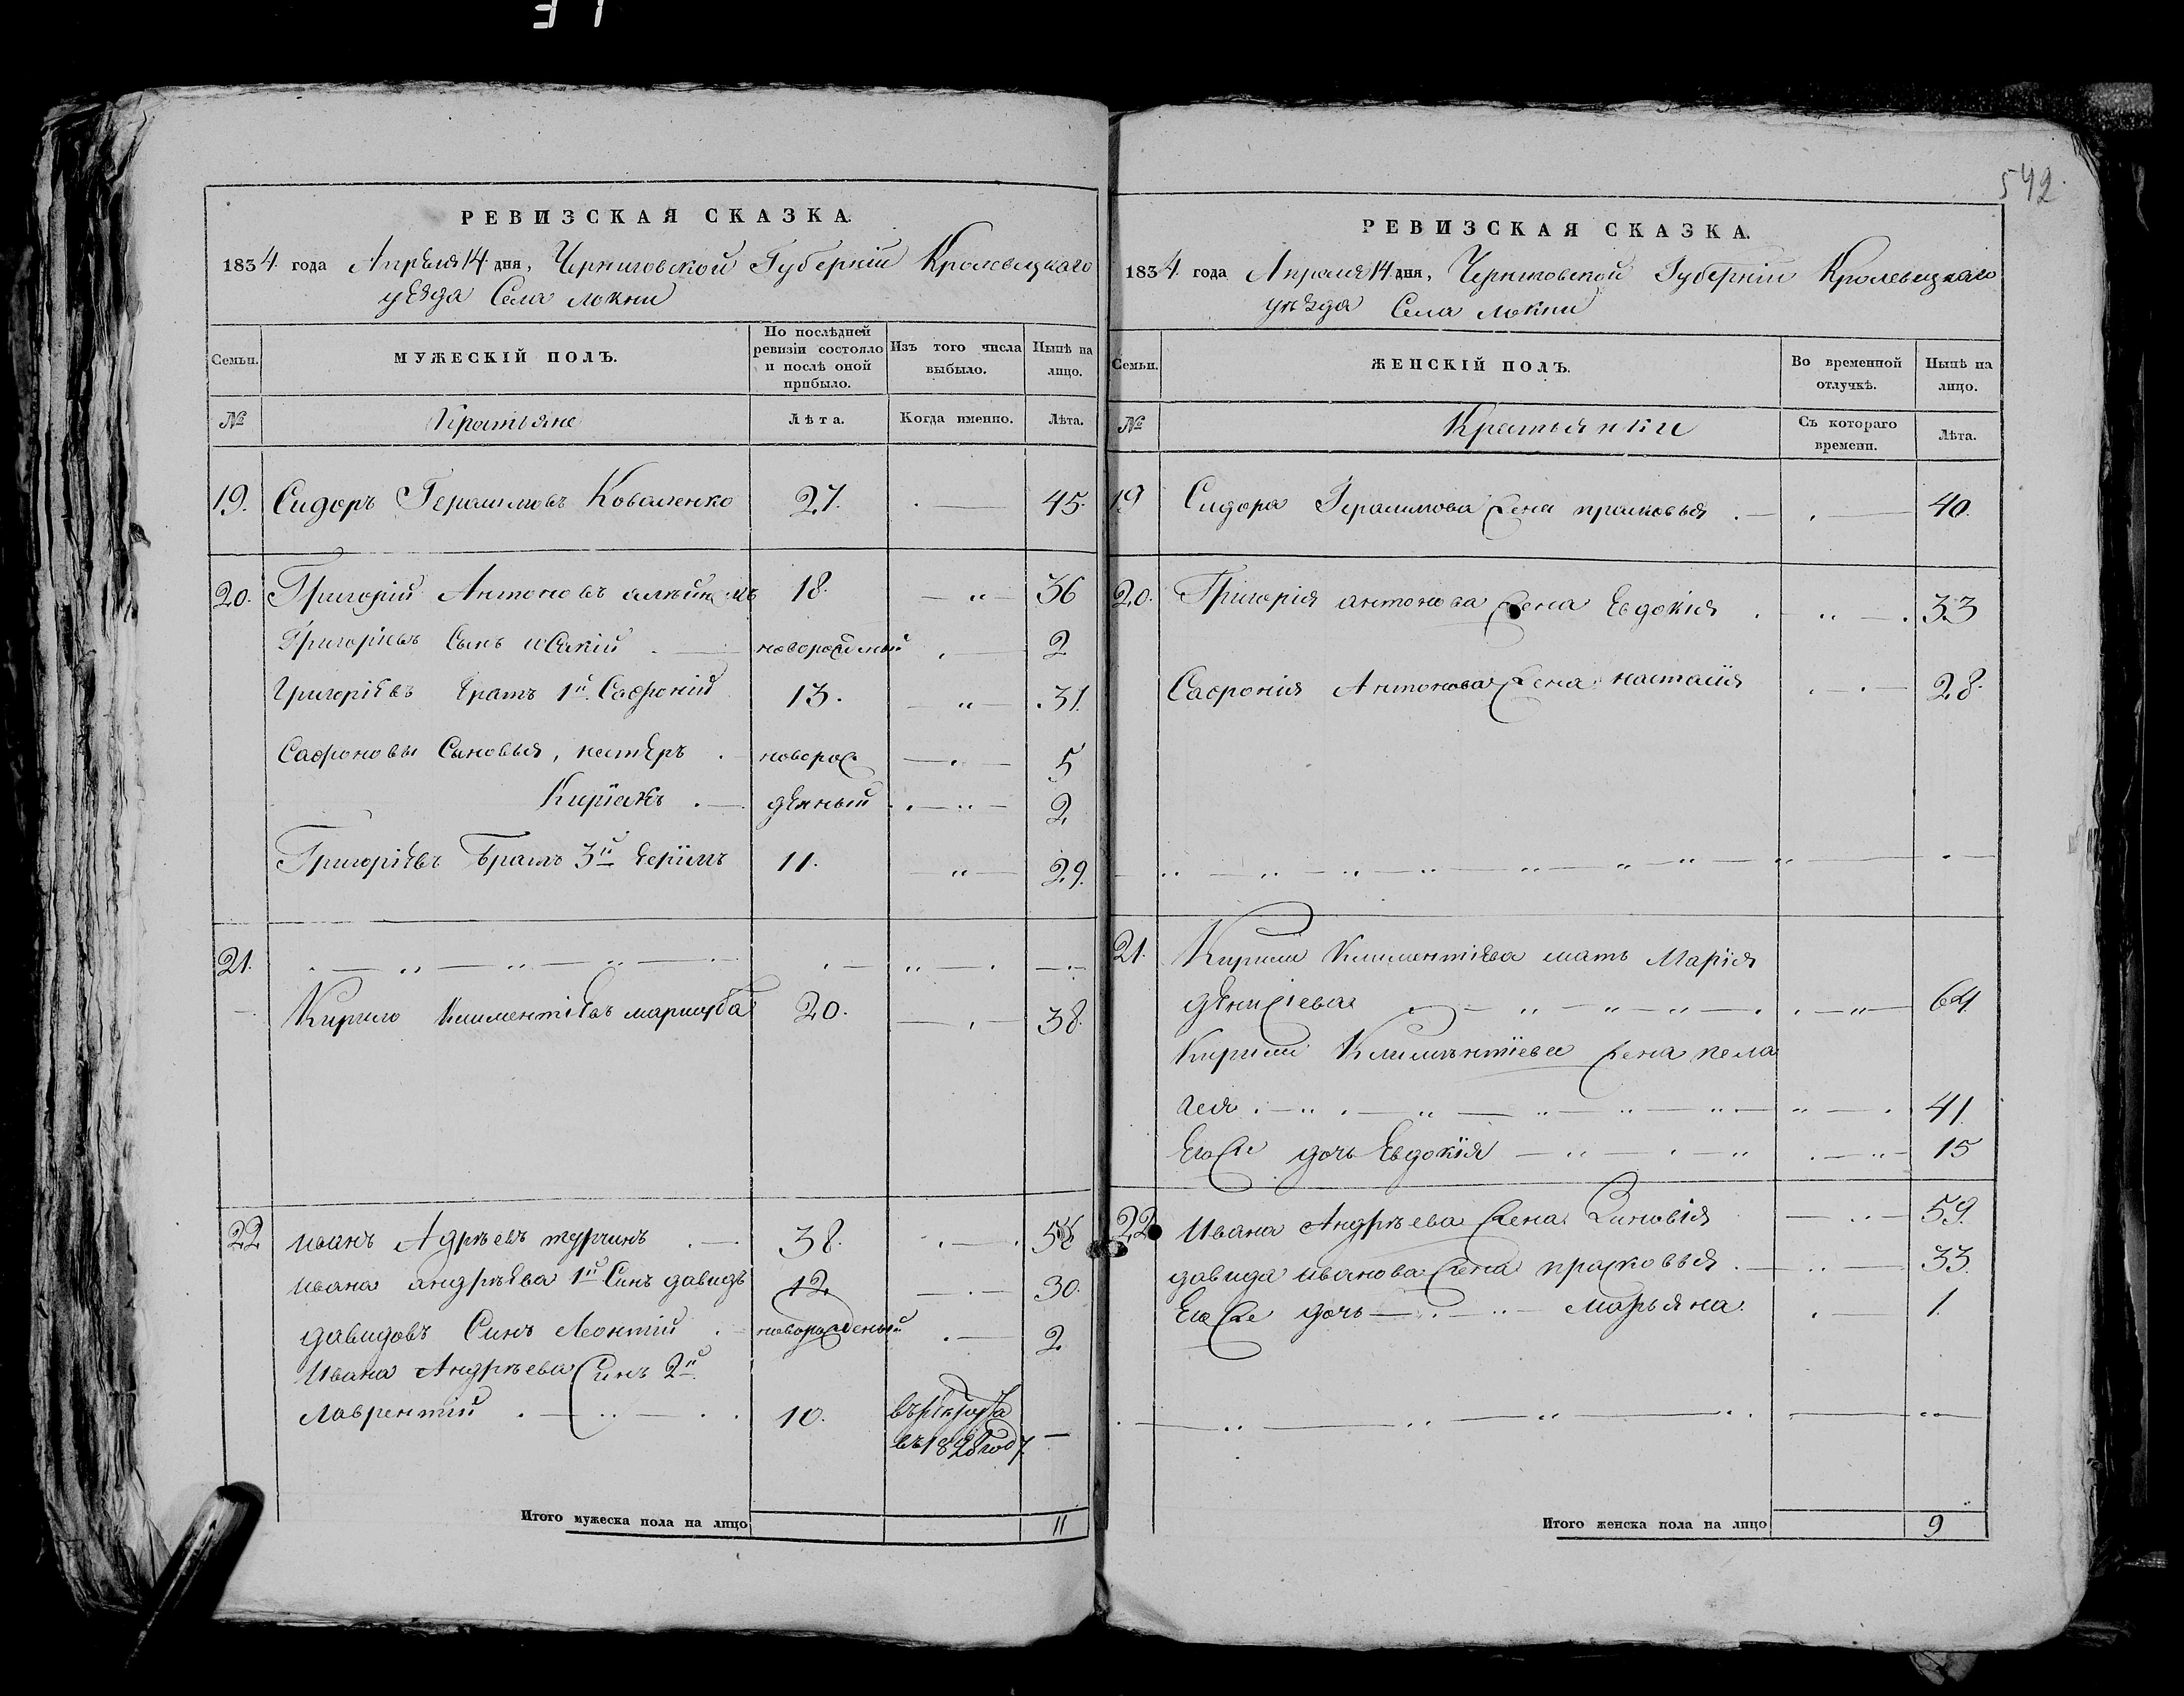 542
РЕВИЗСКАЯ СКАЗКА.
1834 года Апреля 14 дня, Черниговской Губерніи Кролевецкаго
уезда Села Локни
Семьи. МУЖЕСКІЙ ПОЛЪ. По послѣдней ревизіи состояло и послѣ оной прибыло. Изъ того числа выбыло. Нынѣ на лицо.
№ Лѣта. Когда именно. Лѣта.
19. Сидоръ Герасимовъ Коваленко 27. 45.
20. Григорій Антоновъ 18. 36
Григориевъ Сынъ новорожденый 2
Григоріевъ братъ 1й Сафроній 13. 31.
Сафроновы Сыновья, нестеръ новорож 5
Киріакъ денный 2
Григоріевъ братъ 3й Ефимъ 11. 29.
21.
Кирило Климентіевъ 20. 38.
22 иванъ Адрѣевъ турчинъ 38.
ивана андрѣева 1й Синъ давидъ 12. 30.
давидовъ Синъ Леонтій новорожденый 2
Ивана Андрѣева Синъ 2й
Лаврентий 10. въ рекрута
въ 1828 году —
Итого мужеска пола на лицо 11
РЕВИЗСКАЯ СКАЗКА.
1834 года Апреля 14 дня, Черниговской Губерніи Кролевецкаго
уѣзда Села Локни
Семьи. ЖЕНСКІЙ ПОЛЪ. Во временной отлучкѣ. Нынѣ на лицо.
№ Съ котораго времени. Лѣта.
19 Сидора Герасимова жена прасковья 40.
20. Григорія антонова жена Евдокія 33
Сафронія Антонова жена настасія 28.
21. Кирили Климентіева мать Марія
денисіева 64
Кирили Климѣнтіева жена пела
гея 41
Его же дочь Евдокія 15
22 Ивана Андрѣева жена Зиновія 59.
давида иванова жена прасковья 33
Его же дочь марьяна 1.
Итого женска пола на лицо 9